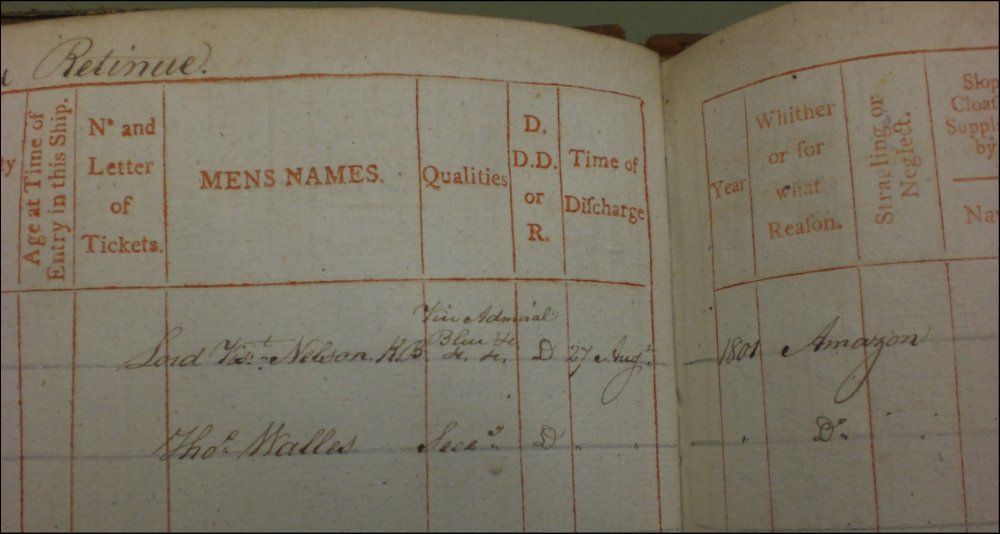 Retinue.
Age at Time of
Entry in this Ship.
Nº and
Letter
of
Tickets.
MENS NAMES.
Qualities
D.
D.D.
or
R.
Time of
Diſcharge
Year
Whither
or for
what
Reaſon.
Stragling or
Neglect.
Slop
Cloat
Suppl
by
Na
Lord Visᵗ Nelson KB Vice Admiral
Blue &c
&c. &c. D 27 Augᵗ 1801 Amazon
Thoˢ Walles Secʸ D " " " Dº